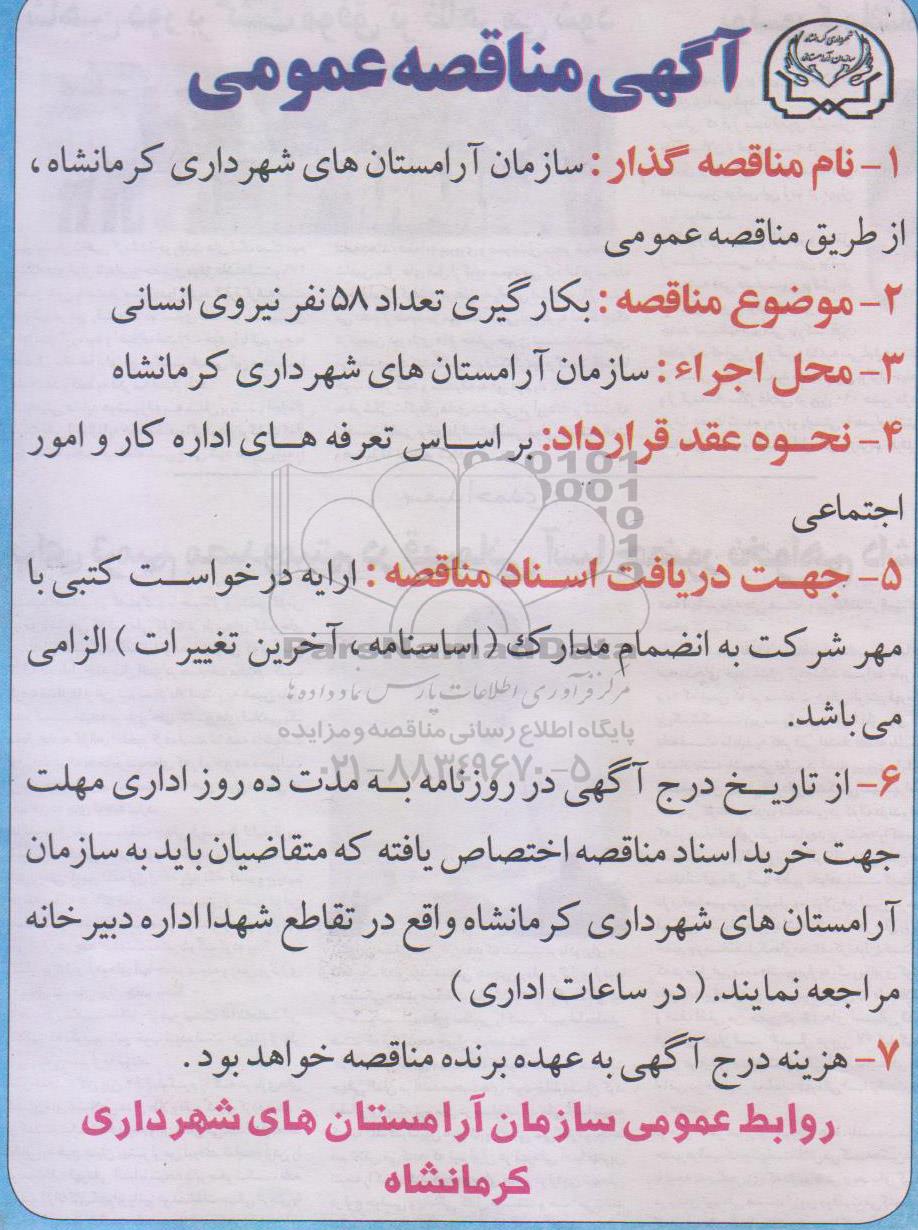 آگهی مناقصه عمومی
شهرداری کرمانشاه
سازمان آرامستان
۱- نام مناقصه گذار : سازمان آرامستان های شهرداری کرمانشاه ،
از طریق مناقصه عمومی
۲- موضوع مناقصه : بکارگیری تعداد ۵۸ نفر نیروی انسانی
۳- محل اجراء : سازمان آرامستان های شهرداری کرمانشاه
۴- نحوه عقد قرارداد: بر اساس تعرفه های اداره کار و امور
اجتماعی
۵- جهت دریافت اسناد مناقصه : ارایه درخواست کتبی با
مهر شرکت به انضمام مدارک ( اساسنامه ، آخرین تغییرات ) الزامی
می باشد.
۶- از تاریخ درج آگهی در روزنامه به مدت ده روز اداری مهلت
جهت خرید اسناد مناقصه اختصاص یافته که متقاضیان باید به سازمان
آرامستان های شهرداری کرمانشاه واقع در تقاطع شهدا اداره دبیرخانه
مراجعه نمایند. ( در ساعات اداری )
۷- هزینه درج آگهی به عهده برنده مناقصه خواهد بود .
روابط عمومی سازمان آرامستان های شهرداری
کرمانشاه
ParsNamadData
مرکز فرآوری اطلاعات پارس نماد داده ها
پایگاه اطلاع رسانی مناقصه و مزایده
۰۲۱-۸۸۳۴۹۶۷۰-۵